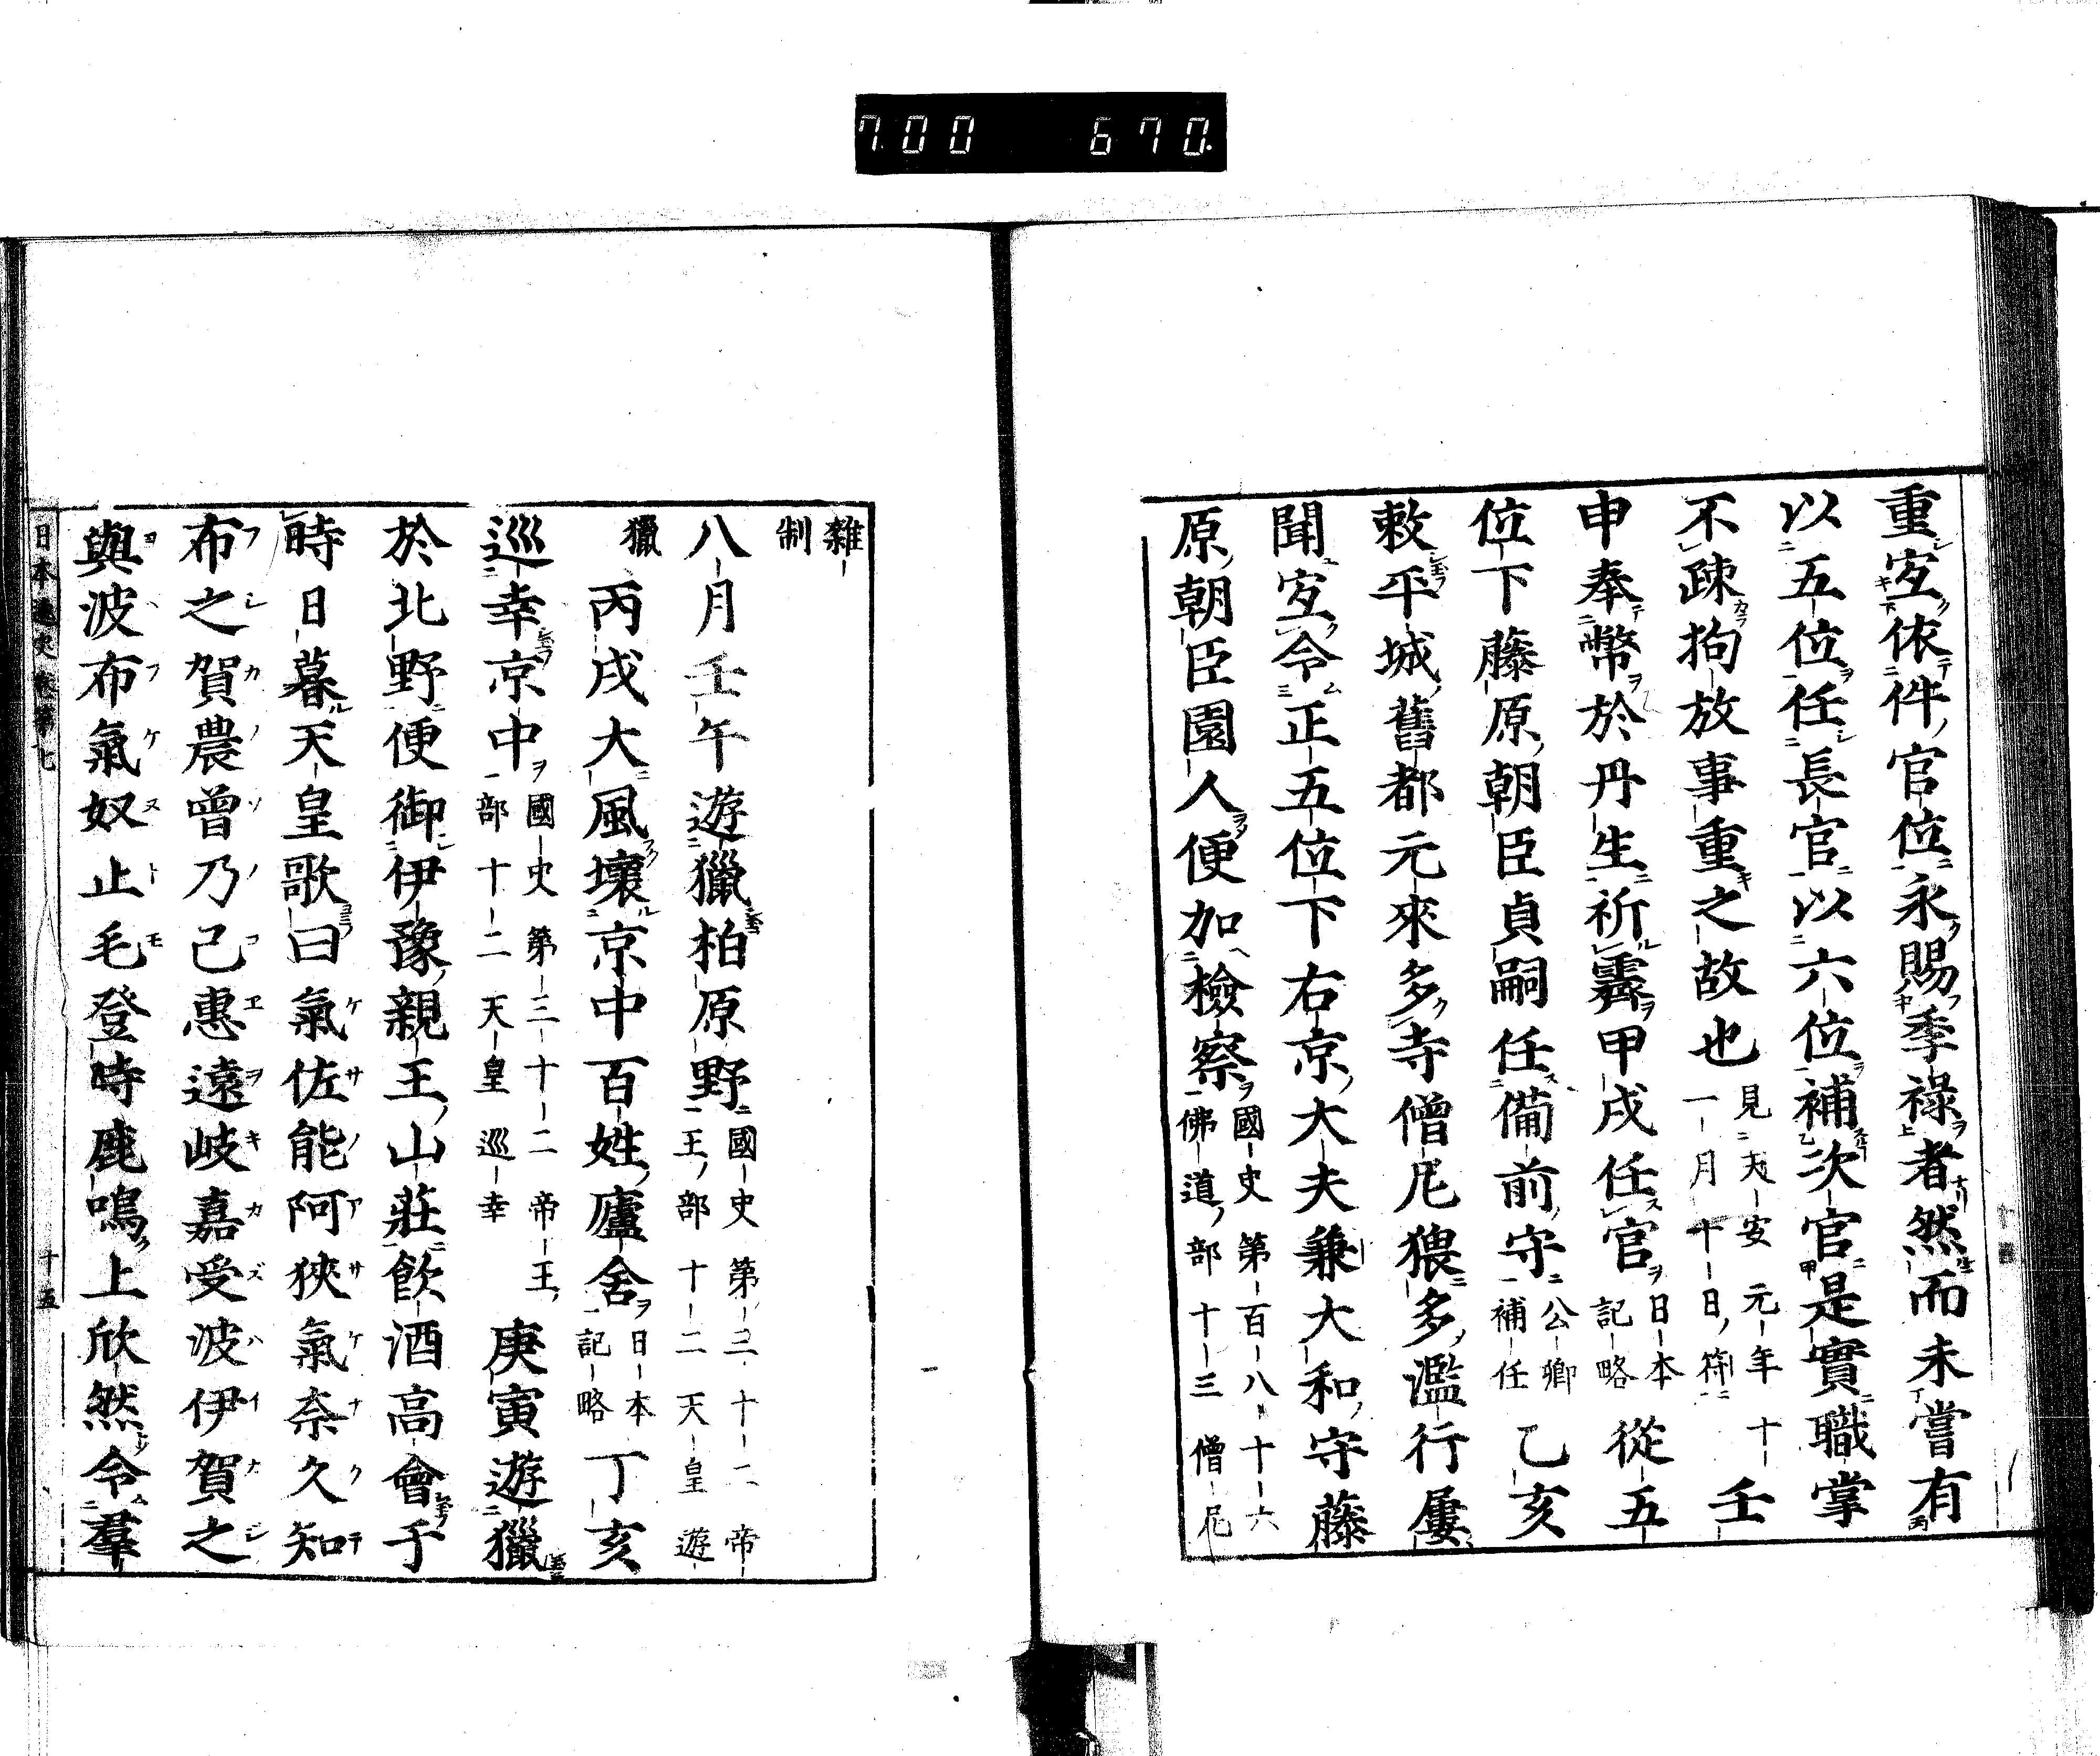 700 670.
重宐依件官位永賜季祿者然而未嘗有
以五位任長官以六位補次官是實職掌
不疎拘放事重之故也見天安元年十一月十一日符壬
申奉幣於丹生祈霽甲戌任官日本記略從五
位下藤原朝臣貞嗣任備前守公卿補任乙亥
敕平城舊都元來多寺僧尼猥多濫行屢
聞宐令正五位下右京大夫兼大和守藤
原朝臣園人便加檢察國史第百八十六佛道部十三僧尼
雜制
八月壬午遊獵柏原野國史第三十二帝王部十二天皇遊
獵丙戌大風壞京中百姓廬舍日本記略丁亥
巡幸京中國史第三十二帝王部十二天皇巡幸庚寅遊獵
於北野便御伊豫親王山莊飮酒高會于
時日暮天皇歌曰氣佐能阿狹氣奈久知
布之賀農曾乃己惠遠岐嘉受波伊賀之
與波布氣奴止毛登時鹿鳴上欣然令羣
日本逸史卷第七 十五